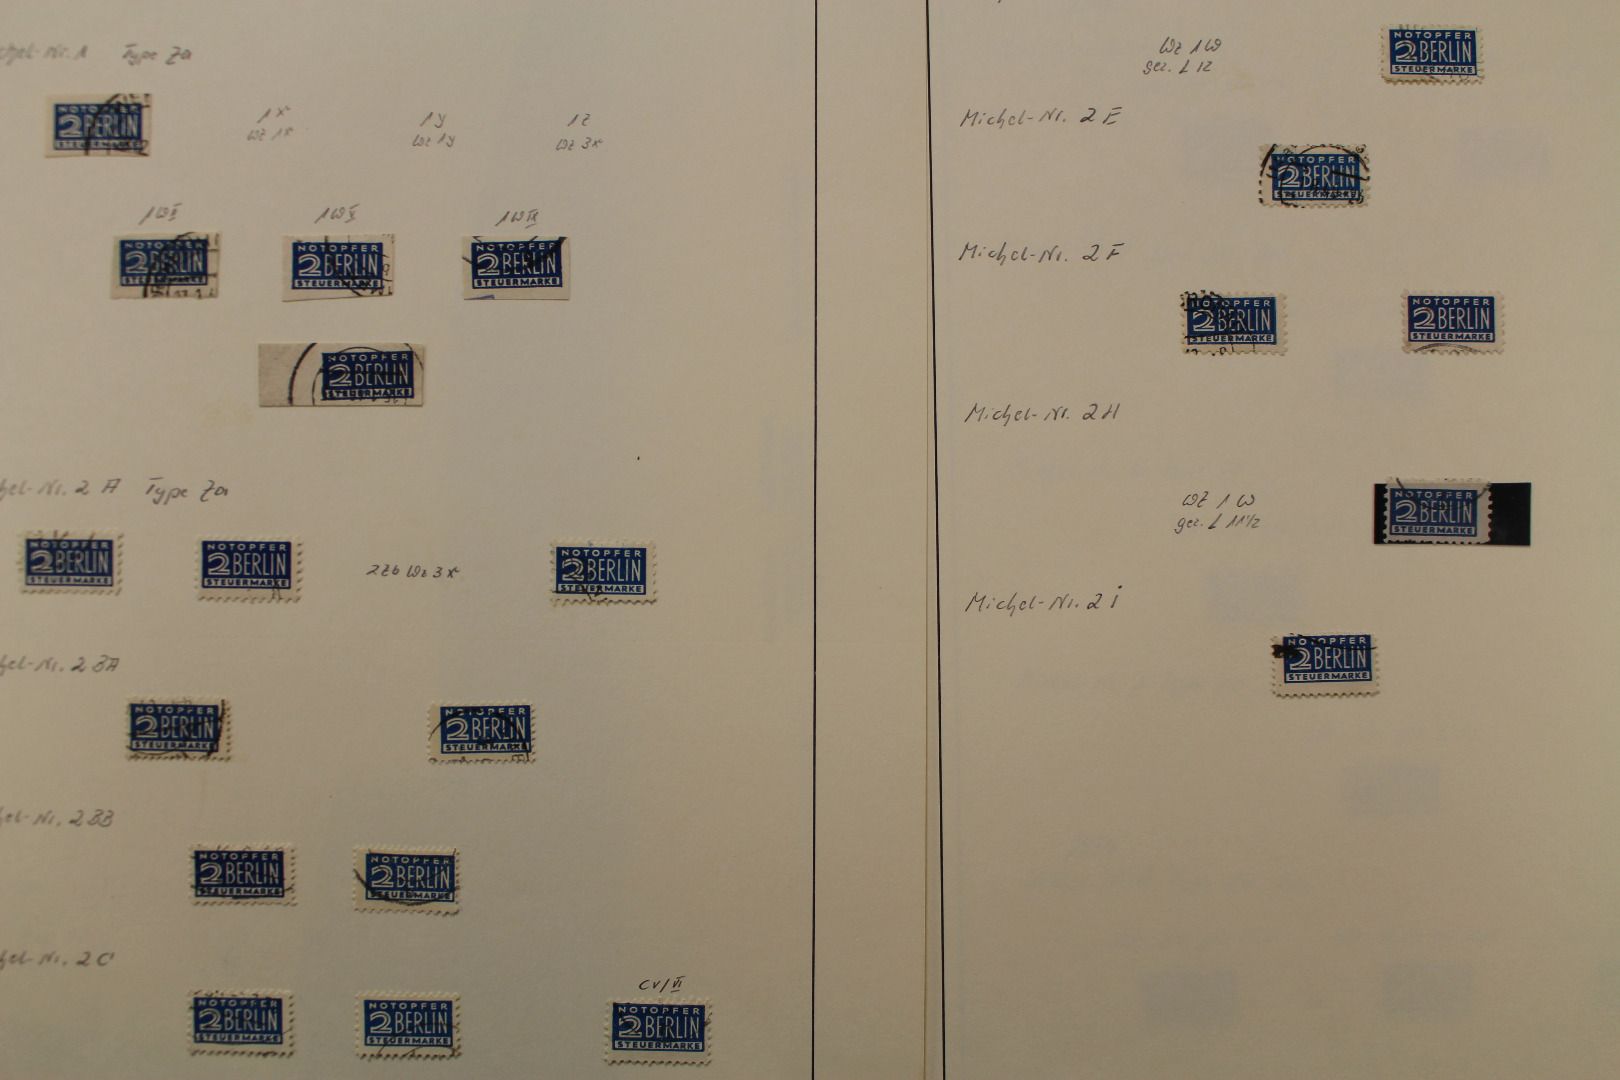 Nr. 1 Type Za
NOTOPFER
2 BERLIN
STEUERMARKE
1x
WZ 1x
1y
WZ 1y
1z
WZ 3x
1W
1W
1W
NOTOPFER
2 BERLIN
STEUERMARKE
NOTOPFER
2 BERLIN
STEUERMARKE
NOTOPFER
2 BERLIN
STEUERMARKE
NOTOPFER
2 BERLIN
STEUERMARKE
Nr. 2 A Type Za
NOTOPFER
2 BERLIN
STEUERMARKE
NOTOPFER
2 BERLIN
STEUERMARKE
2Zb Wz 3x
NOTOPFER
2 BERLIN
STEUERMARKE
Nr. 2 BA
NOTOPFER
2 BERLIN
STEUERMARKE
NOTOPFER
2 BERLIN
STEUERMARKE
Nr. 2BB
NOTOPFER
2 BERLIN
STEUERMARKE
NOTOPFER
2 BERLIN
STEUERMARKE
Nr. 2C
NOTOPFER
2 BERLIN
STEUERMARKE
NOTOPFER
2 BERLIN
STEUERMARKE
CV/VI
NOTOPFER
2 BERLIN
STEUERMARKE
WZ 1W
gez. L 12
NOTOPFER
2 BERLIN
STEUERMARKE
Michel-Nr. 2 E
NOTOPFER
2 BERLIN
STEUERMARKE
Michel-Nr. 2 F
NOTOPFER
2 BERLIN
STEUERMARKE
NOTOPFER
2 BERLIN
STEUERMARKE
Michel-Nr. 2H
WZ 1 W
gez. L 11 1/2
NOTOPFER
2 BERLIN
STEUERMARKE
Michel-Nr. 2 i
NOTOPFER
2 BERLIN
STEUERMARKE